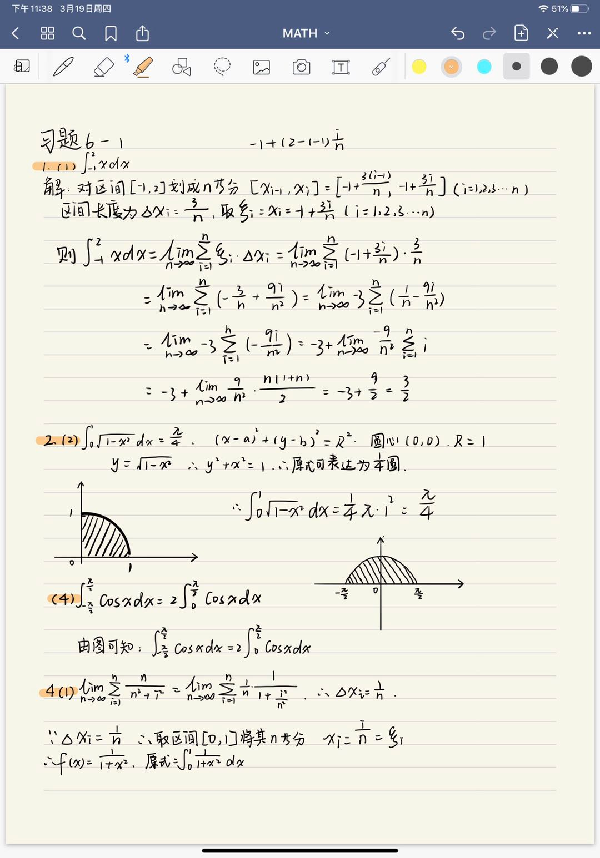 下午11:38 3月19日周四
51%
MATH
习题6-1 -1+(2-(-1))i/n
1.(1) ∫_{-1}^{2} xdx
解: 对区间[-1,2]划成n等分 [x_{i-1}, x_i] = [-1+3(i-1)/n, -1+3i/n] (i=1,2,3…n)
区间长度为Δx_i=3/n, 取ξ_i=x_i=-1+3i/n (i=1,2,3…n)
则∫_{-1}^{2} xdx = lim_{n→∞} Σ_{i=1}^{n} ξ_i·Δx_i = lim_{n→∞} Σ_{i=1}^{n} (-1+3i/n)·3/n
= lim_{n→∞} Σ_{i=1}^{n} (-3/n + 9i/n²) = lim_{n→∞} -3 Σ_{i=1}^{n} (1/n - 9i/n²)
= lim_{n→∞} -3 Σ_{i=1}^{n} (-9i/n²) = -3 + lim_{n→∞} -9/n² Σ_{i=1}^{n} i
= -3 + lim_{n→∞} 9/n² · n(1+n)/2 = -3 + 9/2 = 3/2
2.(2) ∫_0^1 √(1-x²) dx = π/4. (x-a)²+(y-b)²=R². 圆心(0,0). R=1
y=√(1-x²) ∴ y²+x²=1. ∴原式可表达为1/4圆.
∴∫_0^1 √(1-x²) dx = 1/4 π·1² = π/4
1
0
1
(4) ∫_{-π/2}^{π/2} cosxdx = 2∫_0^{π/2} cosxdx
-π/2 0 π/2
由图可知: ∫_{-π/2}^{π/2} cosxdx = 2∫_0^{π/2} cosxdx
4(1) lim_{n→∞} Σ_{i=1}^{n} n/(n²+i²) = lim_{n→∞} Σ_{i=1}^{n} 1/n · 1/(1+i²/n²). ∴Δx_i=1/n.
∵Δx_i=1/n ∴取区间[0,1]将其n等分 x_i=i/n=ξ_i
∴f(x)=1/(1+x²). 原式=∫_0^1 1/(1+x²) dx